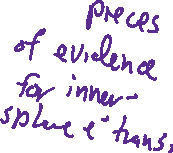 pieces
of evidence
for inner-
sphere e⁻ trans.